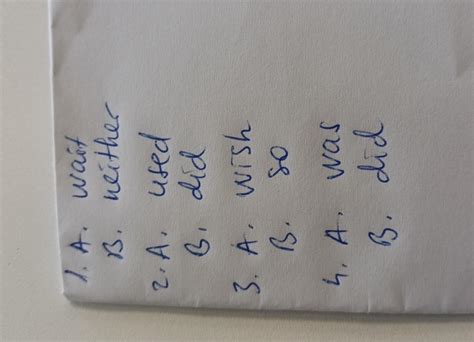 1. A. wait
B. neither
2. A. used
B. did
3. A. wish
B. so
4. A. was
B. did